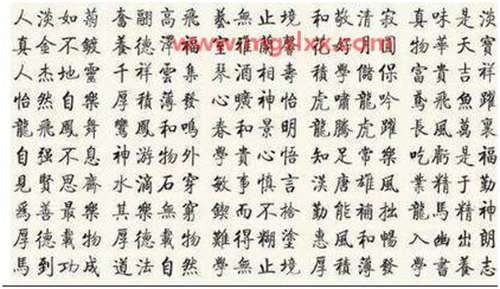 人淡如菊 奮翮高飛 藝無止境 和敬清寂 真味是淡
真金不鍍 養德 福 馨 月圓 物華天寶
www.mgslxx.com
人杰地靈 千祥雲集 琴酒相壽 積學儲 富貴吉祥
怡然自樂 厚積薄發 心曠神怡 虎嘯龍吟 鳶飛魚躍
龍飛鳳舞 鸞鳳和鳴 春和景明 龍騰虎躍 長風萬裏
自强不息 神游物外 和貴心悟 知足常樂 吃虧是福
見賢思齋 水滴石穿 敏事慎言 漢唐雄風 業精于勤
爲善最樂 其樂無窮 鍥而不捨 勤能補拙 龍馬精神
厚德載物 厚德載物 難得糊塗 惠風和暢 入幽出朗
馬到功成 道法自然 學無止境 厚積薄發 學書養志